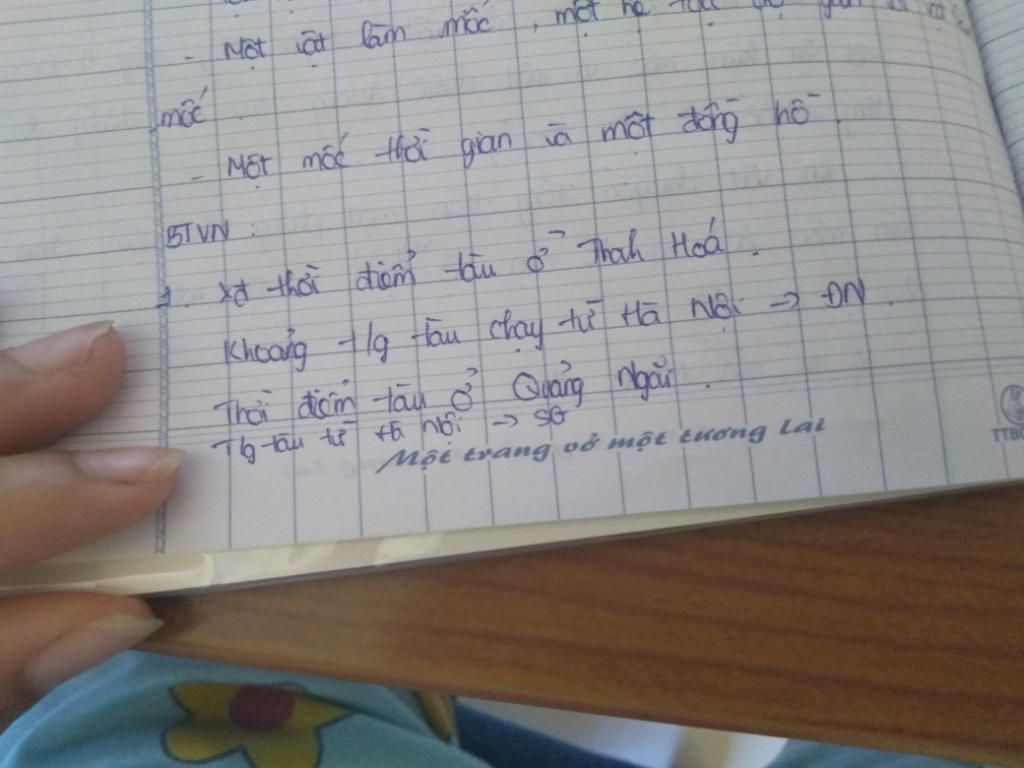 - Một vật làm mốc, một hệ tọa độ gắn
mốc
- Một mốc thời gian và một đồng hồ.
BTVN:
1. Xđ thời điểm tàu ở Thah Hoá.
Khoảng t/g tàu chạy từ Hà Nội → ĐN.
Thời điểm tàu ở Quảng Ngãi.
T/g tàu từ Hà Nội → SG
Một trang vở một tương lai
TTBO